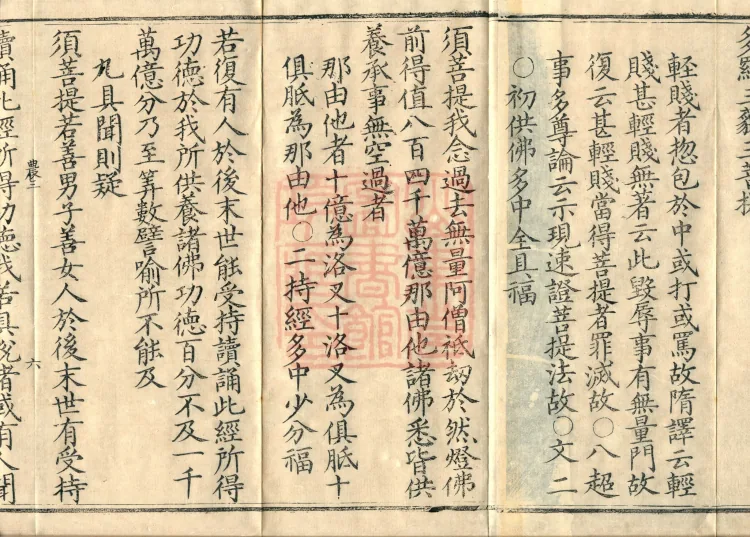 多羅三藐三菩提
輕賤者惣包於中或打或罵故隋譯云輕
賤甚輕賤無著云此毀辱事有無量門故
復云甚輕賤當得菩提者罪滅故○八超
事多尊論云示現速證菩提法故○文二
○初供佛多中全具福
須菩提我念過去無量阿僧祇劫於然燈佛
前得值八百四千萬億那由他諸佛悉皆供
養承事無空過者
那由他者十億為洛叉十洛叉為俱胝十
俱胝為那由他○二持經多中少分福
若復有人於後末世能受持讀誦此經所得
功德於我所供養諸佛功德百分不及一千
萬億分乃至筭數譬喻所不能及
九具聞則疑
須菩提若善男子善女人於後末世有受持
農三 六
讀誦此經所得功德我若具說者或有人聞